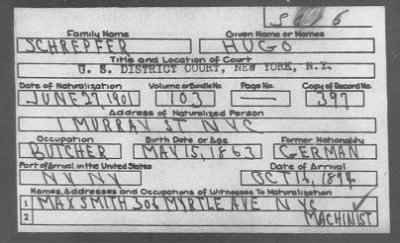 Family Name Given Name or Names
SCHREPFER HUGO
Title and Location of Court
U. S. DISTRICT COURT, NEW YORK, N.Y.
Date of Naturalization Volume or Bundle No. Page No. Copy of Record No.
JUNE 27, 1901 103 — 397
Address of Naturalized Person
1 MURRAY ST N Y C
Occupation Birth Date or Age Former Nationality
BUTCHER MAY 15, 1863 GERMAN
Port of Arrival in the United States Date of Arrival
N Y N Y OCT 16, 1894
Names, Addresses and Occupations of Witnesses To Naturalization
1 MAX SMITH 306 MYRTLE AVE N Y C
2 MACHINIST